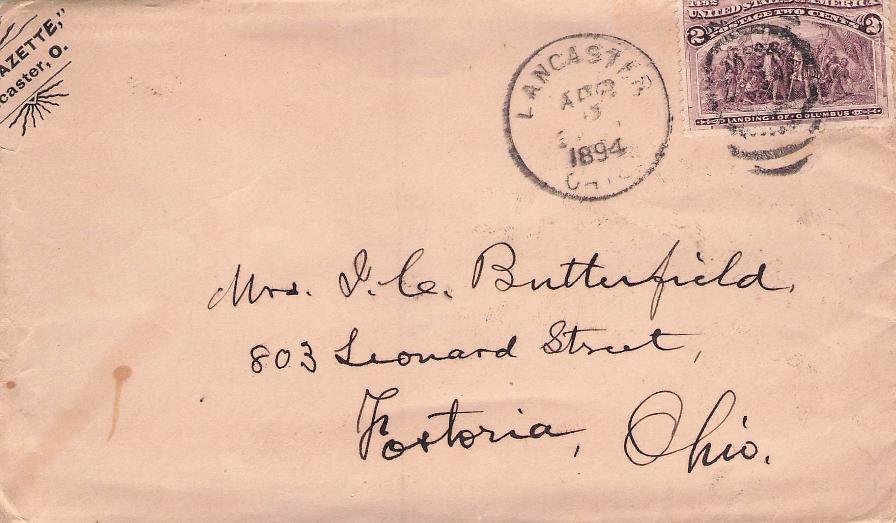 AZETTE,"
caster, O.
LANCASTER
APR
1894
OHIO
1492
UNITED STATES OF AMERICA
POSTAGE TWO CENTS
2 2
LANDING · OF · COLUMBUS
Mrs. I. C. Butterfield,
803 Leonard Street,
Fostoria, Ohio.